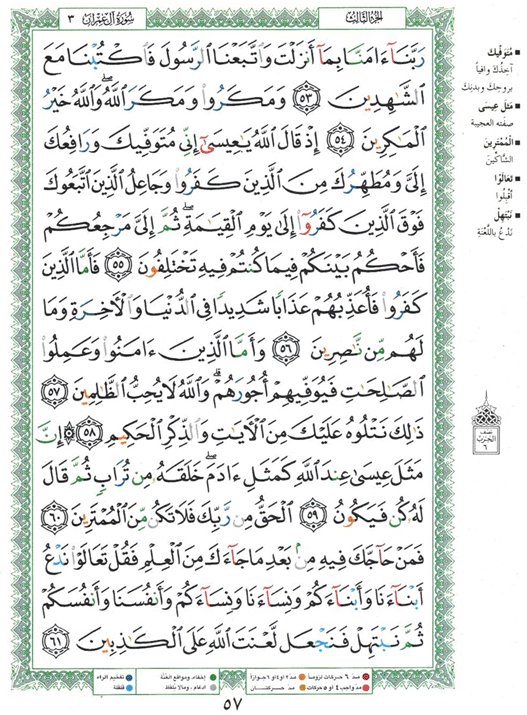 الجزء الثالث
سورة آل عمران ٣
رَبَّنَآ ءَامَنَّا بِمَآ أَنزَلْتَ وَٱتَّبَعْنَا ٱلرَّسُولَ فَٱكْتُبْنَا مَعَ
ٱلشَّٰهِدِينَ ٥٣ وَمَكَرُوا۟ وَمَكَرَ ٱللَّهُ ۖ وَٱللَّهُ خَيْرُ
ٱلْمَٰكِرِينَ ٥٤ إِذْ قَالَ ٱللَّهُ يَٰعِيسَىٰٓ إِنِّى مُتَوَفِّيكَ وَرَافِعُكَ
إِلَىَّ وَمُطَهِّرُكَ مِنَ ٱلَّذِينَ كَفَرُوا۟ وَجَاعِلُ ٱلَّذِينَ ٱتَّبَعُوكَ
فَوْقَ ٱلَّذِينَ كَفَرُوٓا۟ إِلَىٰ يَوْمِ ٱلْقِيَٰمَةِ ۖ ثُمَّ إِلَىَّ مَرْجِعُكُمْ
فَأَحْكُمُ بَيْنَكُمْ فِيمَا كُنتُمْ فِيهِ تَخْتَلِفُونَ ٥٥ فَأَمَّا ٱلَّذِينَ
كَفَرُوا۟ فَأُعَذِّبُهُمْ عَذَابًا شَدِيدًا فِى ٱلدُّنْيَا وَٱلْءَاخِرَةِ وَمَا
لَهُم مِّن نَّٰصِرِينَ ٥٦ وَأَمَّا ٱلَّذِينَ ءَامَنُوا۟ وَعَمِلُوا۟
ٱلصَّٰلِحَٰتِ فَيُوَفِّيهِمْ أُجُورَهُمْ ۗ وَٱللَّهُ لَا يُحِبُّ ٱلظَّٰلِمِينَ ٥٧
ذَٰلِكَ نَتْلُوهُ عَلَيْكَ مِنَ ٱلْءَايَٰتِ وَٱلذِّكْرِ ٱلْحَكِيمِ ٥٨ ۞ إِنَّ
مَثَلَ عِيسَىٰ عِندَ ٱللَّهِ كَمَثَلِ ءَادَمَ ۖ خَلَقَهُۥ مِن تُرَابٍ ثُمَّ قَالَ
لَهُۥ كُن فَيَكُونُ ٥٩ ٱلْحَقُّ مِن رَّبِّكَ فَلَا تَكُن مِّنَ ٱلْمُمْتَرِينَ ٦٠
فَمَنْ حَآجَّكَ فِيهِ مِنۢ بَعْدِ مَا جَآءَكَ مِنَ ٱلْعِلْمِ فَقُلْ تَعَالَوْا۟ نَدْعُ
أَبْنَآءَنَا وَأَبْنَآءَكُمْ وَنِسَآءَنَا وَنِسَآءَكُمْ وَأَنفُسَنَا وَأَنفُسَكُمْ
ثُمَّ نَبْتَهِلْ فَنَجْعَل لَّعْنَتَ ٱللَّهِ عَلَى ٱلْكَٰذِبِينَ ٦١
■ مُتَوَفِّيكَ
آخِذُكَ وافياً
بروحِكَ وبدنِكَ
■ مَثَلَ عِيسَى
صفته العجيبة
■ الْمُمْتَرِينَ
الشاكِّينَ
■ تَعَالَوْا
أَقْبِلُوا
■ نَبْتَهِلْ
نَدْعُ باللَّعْنَةِ
نصف
الحزب
٦
مدّ ٦ حركات لزوماً
مدّ ٢ أو ٤ أو ٦ جوازاً
إخفاء، ومواقع الغُنَّة
تفخيم الراء
مدّ واجب ٤ أو ٥ حركات
مدّ حركتان
إدغام، وما لا يُلفظ
قلقلة
٥٧